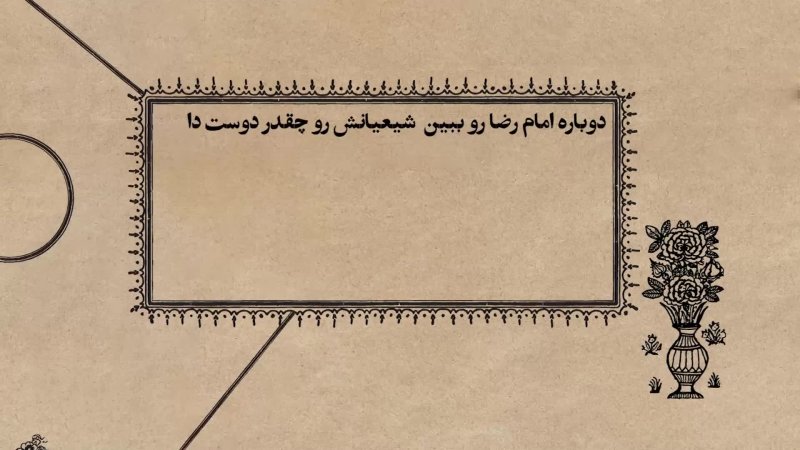 دوباره امام رضا رو ببین شیعیانش رو چقدر دوست دا